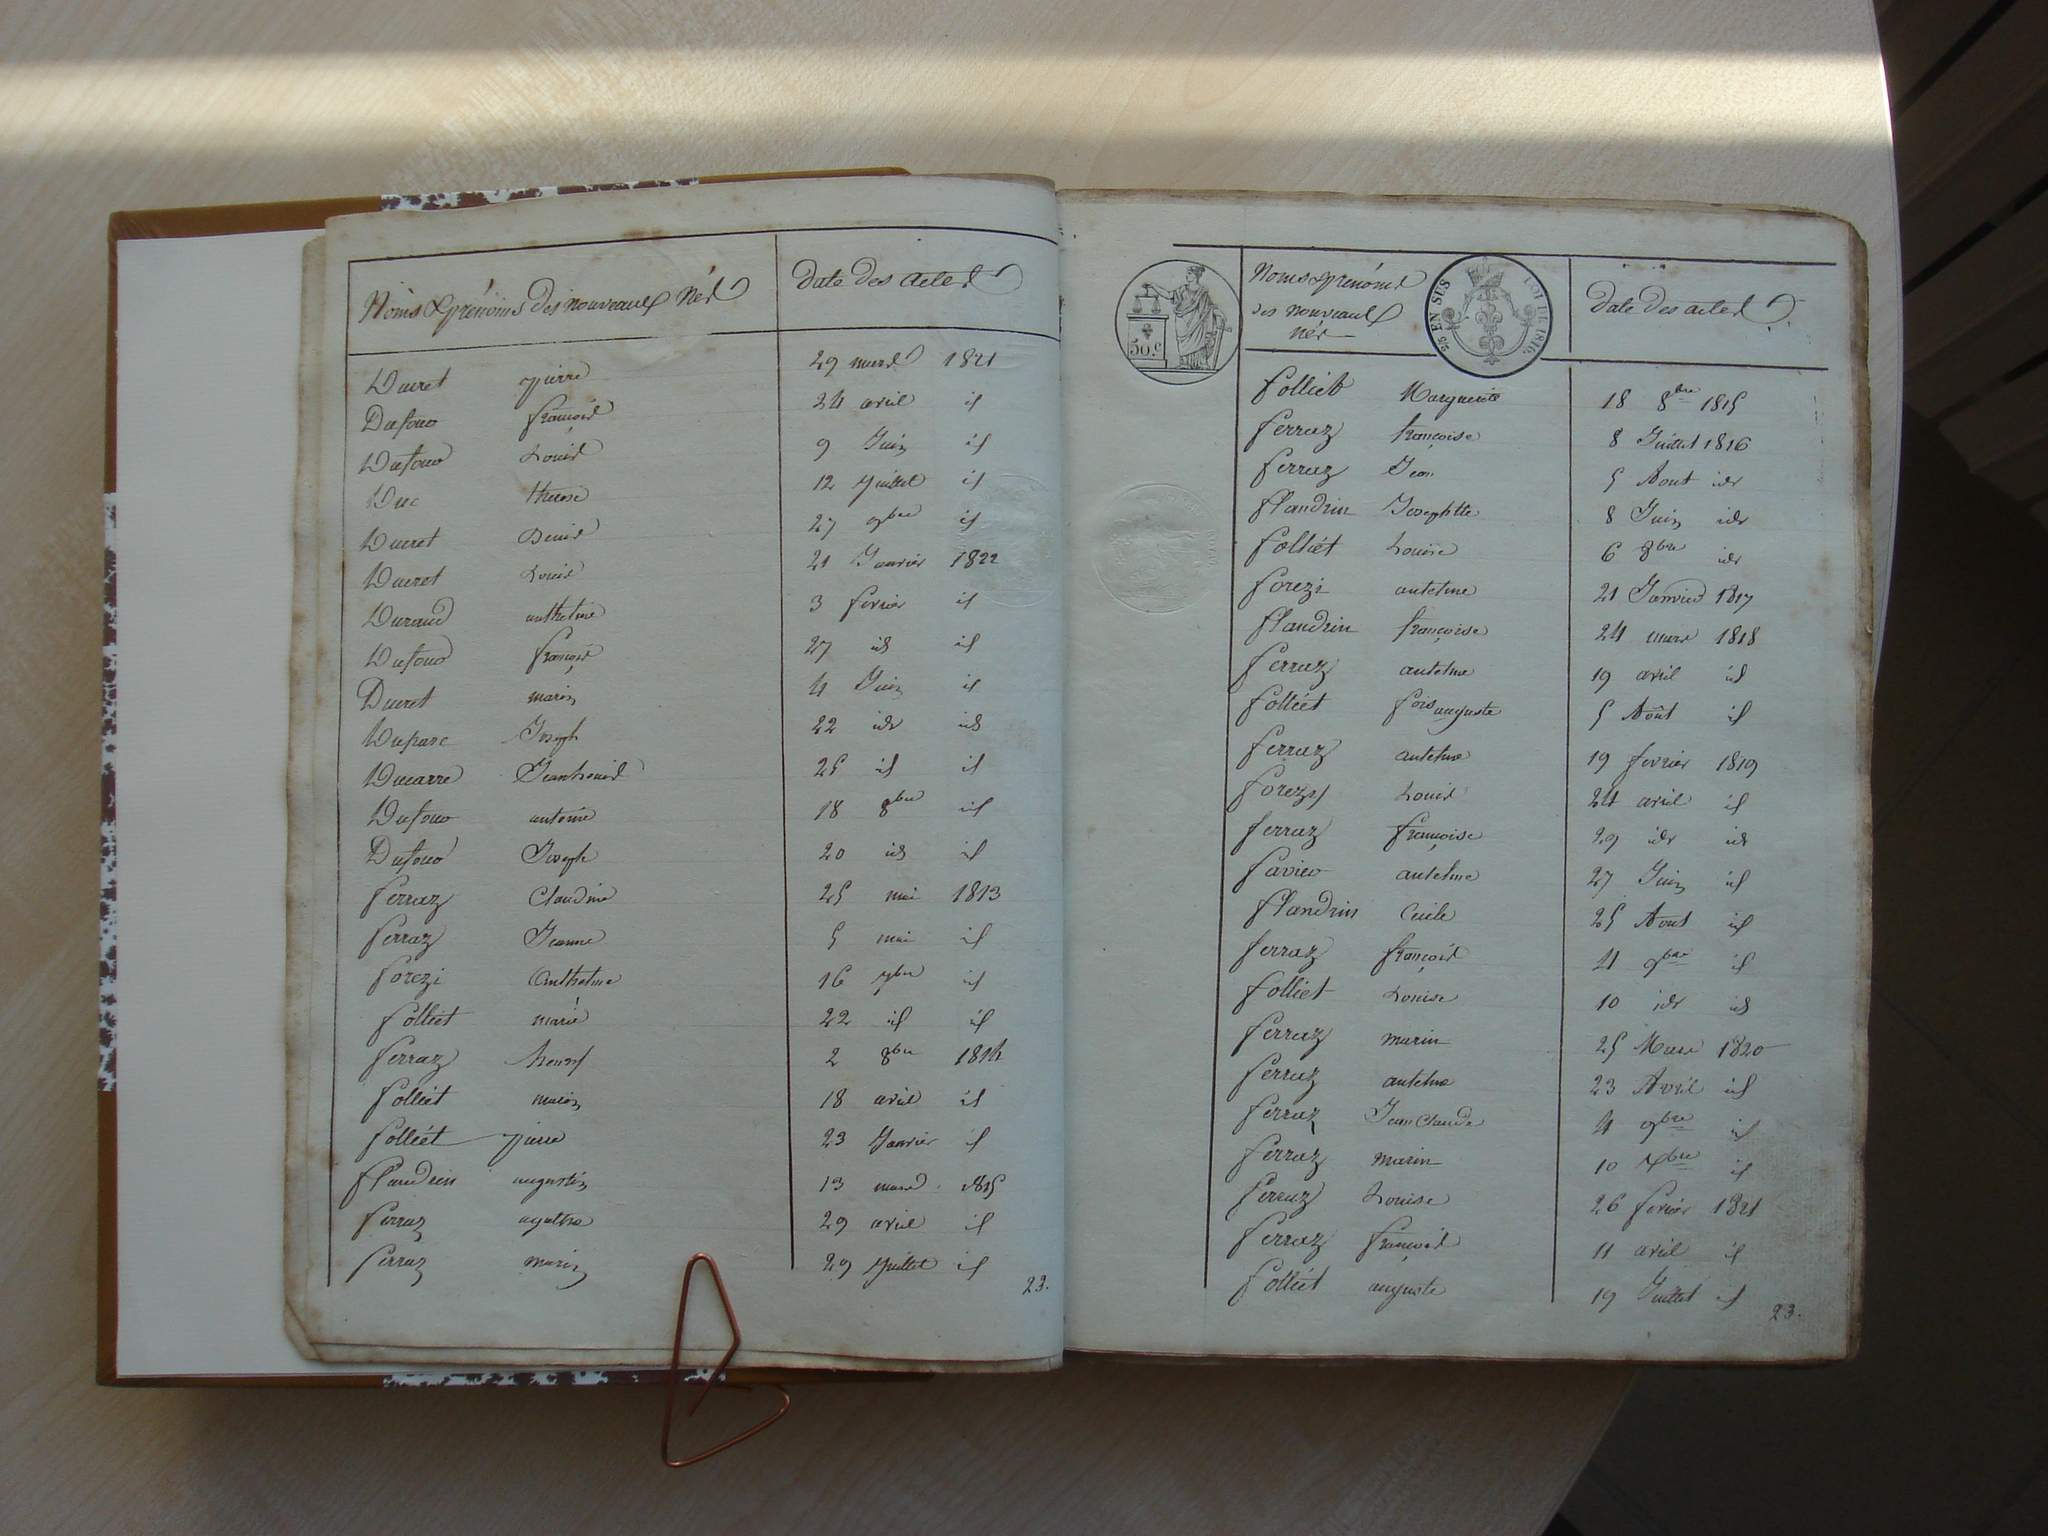 Noms & prénoms des nouveaux nés Date des actes
Ducret pierre 29 mars 1821
Dufour françois 24 avril id
Dufour Louis 9 Juin id
Duc therese 12 juillet id
Ducret Denis 27 9bre id
Ducret Louis 21 Janvier 1822
Durand anthelme 3 fevrier id
Dufour françois 27 id id
Ducret marin 4 Juin id
Duparc Joseph 22 idr id
Ducarre Jean Louis 25 id id
Dufour antoine 18 8bre id
Dufour Joseph 20 id id
ferraz Claudine 25 mai 1813
ferraz Jeanne 5 mai id
forezi Anthelme 16 7bre id
folliet marie 22 id id
ferraz 2 8bre 1814
folliet marin 18 avril id
folliét pierre 23 Janvier id
flandrin augustin 13 mars 1815
ferraz agathe 29 avril id
ferraz marin 29 juillet id
23.
Noms & prénoms
des nouveaux
nés
Date des actes
50.c
25 EN SUS
LOI DE 1816
folliet Marguerite 18 8bre 1815
ferraz françoise 8 Juillet 1816
ferraz Jean 5 Aout idr
flandrin Josephtte 8 Juin idr
folliét Louise 6 8bre idr
forezi antelme 21 Janvier 1817
flandrin françoise 24 mars 1818
ferraz antelme 19 avril id
folliét fois auguste 5 Août id
ferraz antelme 19 fevrier 1819
forezy Louis 24 avril id
ferraz françoise 29 idr idr
favier antelme 27 Juin id
flandrin Cecile 25 Aout id
ferraz françois 4 9bre id
folliet Louise 10 idr id
ferraz marin 25 Mars 1820
ferraz antelme 23 Avril id
ferraz Jean Claude 4 9bre id
ferraz marin 10 Xbre id
ferraz Louise 26 fevrier 1821
ferraz françois 11 avril id
folliét auguste 19 Juillet id
23.